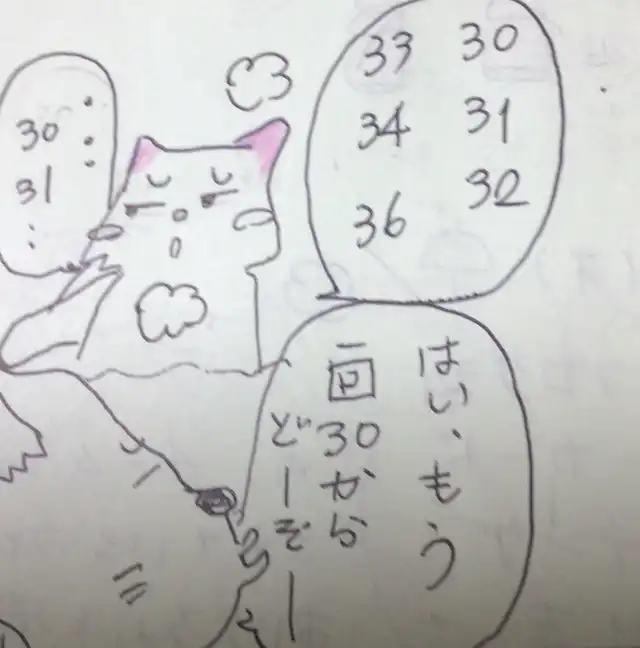 30
31
32
33
34
36
はい、もう
一回30から
どーぞー
…
30
31
…